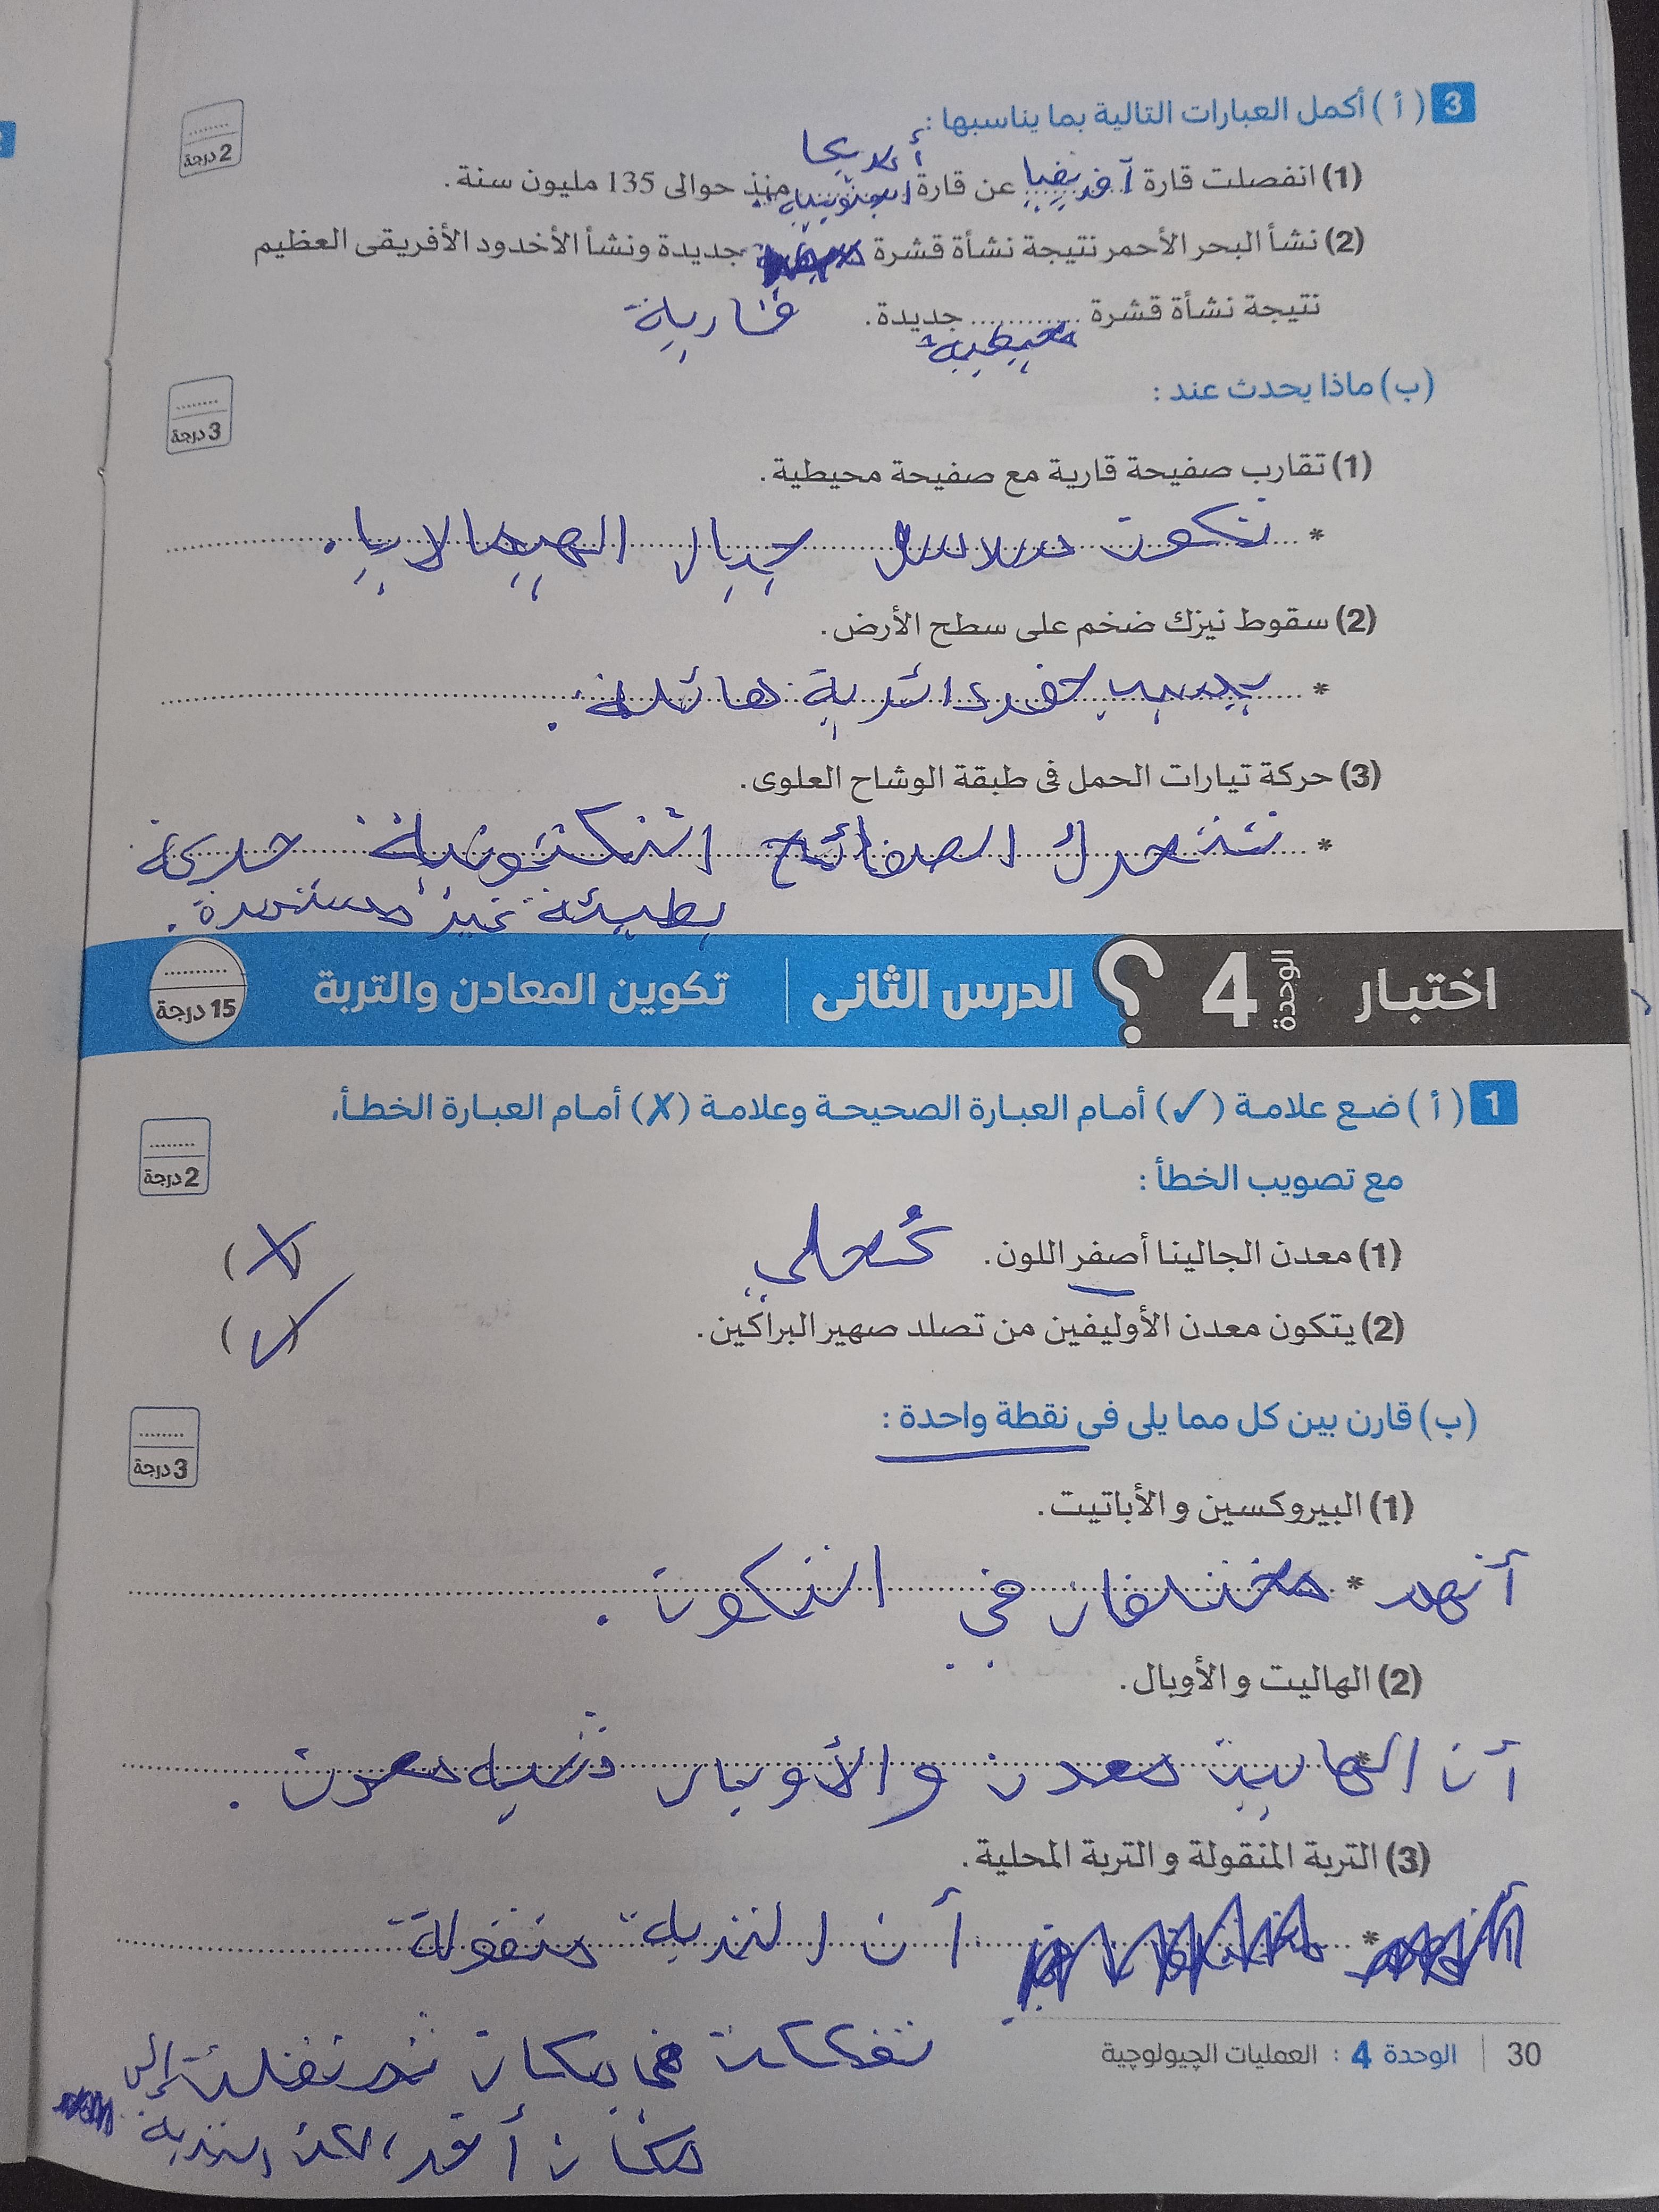 3 ( أ ) أكمل العبارات التالية بما يناسبها :
2 درجة
(1) انفصلت قارة أفريقيا عن قارة أمريكا الجنوبية منذ حوالى 135 مليون سنة .
(2) نشأ البحر الأحمر نتيجة نشأة قشرة جديدة ونشأ الأخدود الأفريقى العظيم
نتيجة نشأة قشرة ............ جديدة . قارية
محيطية
(ب) ماذا يحدث عند :
3 درجة
(1) تقارب صفيحة قارية مع صفيحة محيطية .
* تتكون سلاسل جبال الهيمالايا .
(2) سقوط نيزك ضخم على سطح الأرض .
* يسبب حفر دائرية هائلة .
(3) حركة تيارات الحمل فى طبقة الوشاح العلوى .
* تتحرك الصفائح التكتونية حركة
بطيئة غير مستمرة .
اختبار الوحدة 4 ? الدرس الثانى | تكوين المعادن والتربة
15 درجة
1 ( أ ) ضع علامة (✓) أمام العبارة الصحيحة وعلامة (✗) أمام العبارة الخطأ،
مع تصويب الخطأ :
2 درجة
(1) معدن الجالينا أصفر اللون . كُحلي (X)
(2) يتكون معدن الأوليفين من تصلد صهير البراكين . (✓)
(ب) قارن بين كل مما يلى فى نقطة واحدة :
3 درجة
(1) البيروكسين و الأباتيت .
أنهم * مختلفان في التكون .
(2) الهاليت و الأوبال .
أن الهاليت معدن و الأوبال شبه معدن .
(3) التربة المنقولة و التربة المحلية .
* أن التربة منقولة
تفككت في مكان ثم نقلت إلى
مكان أخر، لكن التربة
30 | الوحدة 4 : العمليات الچيولوچية